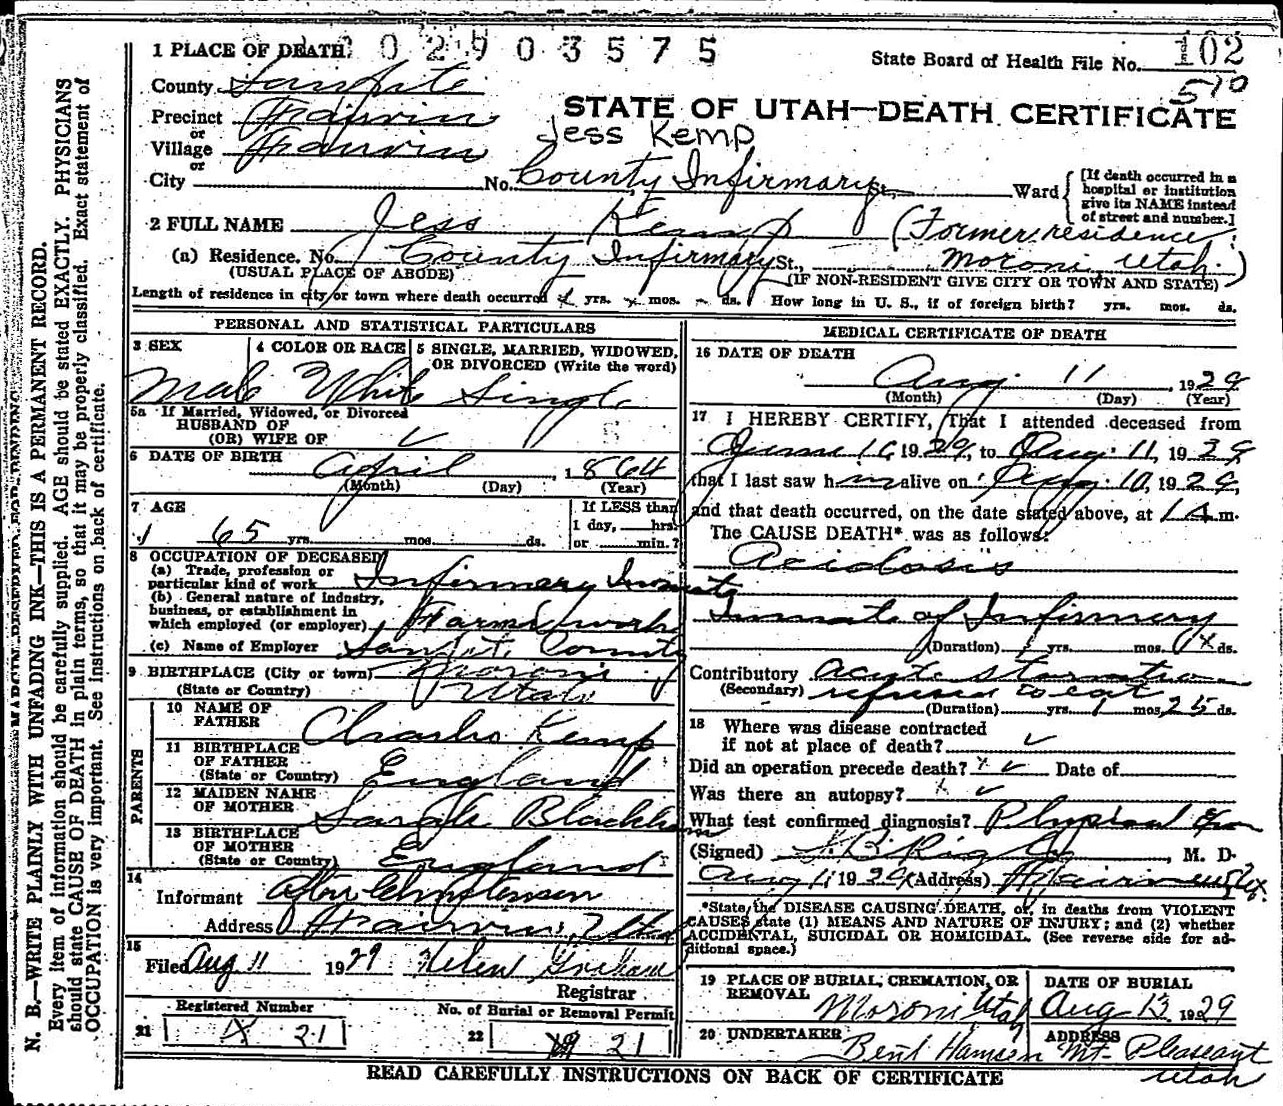 2 9 0 3 5 7 5
1 PLACE OF DEATH
State Board of Health File No. 102
510
County Sanpete
STATE OF UTAH—DEATH CERTIFICATE
Precinct Fairview
Jess Kemp
or
Village Fairview
or
City No. County Infirmary St., Ward
[If death occurred in a
hospital or institution
give its NAME instead
of street and number.]
2 FULL NAME Jess Kemp (Former residence
(a) Residence. No. County Infirmary St., Moroni, Utah.)
(USUAL PLACE OF ABODE) (IF NON-RESIDENT GIVE CITY OR TOWN AND STATE)
Length of residence in city or town where death occurred yrs. mos. ds. How long in U. S., if of foreign birth? yrs. mos. ds.
PERSONAL AND STATISTICAL PARTICULARS
3 SEX
4 COLOR OR RACE
5 SINGLE, MARRIED, WIDOWED,
OR DIVORCED (Write the word)
Male White Single
5a If Married, Widowed, or Divorced
HUSBAND OF
(OR) WIFE OF
6 DATE OF BIRTH
April , 1864
(Month) (Day) (Year)
7 AGE
65 yrs. mos. ds.
If LESS than
1 day, hrs.
or min.?
8 OCCUPATION OF DECEASED
(a) Trade, profession or
particular kind of work Infirmary Inmate
(b) General nature of industry,
business, or establishment in
which employed (or employer) Farm work
(c) Name of Employer Sanpete County
9 BIRTHPLACE (City or town) Moroni
(State or Country) Utah
PARENTS
10 NAME OF
FATHER Charles Kemp
11 BIRTHPLACE
OF FATHER
(State or Country) England
12 MAIDEN NAME
OF MOTHER Sarah Blackham
13 BIRTHPLACE
OF MOTHER
(State or Country) England
14
Informant Christensen
Address Fairview, Utah
15
Filed Aug 11 1929 Helen Graham
Registrar
Registered Number
No. of Burial or Removal Permit
21 21
22 21
MEDICAL CERTIFICATE OF DEATH
16 DATE OF DEATH
Aug 11 , 1929
(Month) (Day) (Year)
17 I HEREBY CERTIFY, That I attended deceased from
June 16 1929, to Aug. 11, 1929
that I last saw him alive on Aug. 10, 1929,
and that death occurred, on the date stated above, at 1 A m.
The CAUSE DEATH* was as follows:
Acidosis
Inmate of Infirmery
(Duration) yrs. mos. ds.
Contributory acute starvation
(Secondary) refused to eat
(Duration) yrs. 1 mos. 25 ds.
18 Where was disease contracted
if not at place of death?
Did an operation precede death? Date of
Was there an autopsy?
What test confirmed diagnosis? Physical Exam
(Signed) , M. D.
Aug 11 1929 (Address) Fairview
*State the DISEASE CAUSING DEATH, or, in deaths from VIOLENT
CAUSES, state (1) MEANS AND NATURE OF INJURY; and (2) whether
ACCIDENTAL, SUICIDAL OR HOMICIDAL. (See reverse side for ad-
ditional space.)
19 PLACE OF BURIAL, CREMATION, OR
REMOVAL Moroni Utah
DATE OF BURIAL
Aug 13 1929
20 UNDERTAKER
Bent Hansen
ADDRESS
Mt. Pleasant
Utah
READ CAREFULLY INSTRUCTIONS ON BACK OF CERTIFICATE
N. B.—WRITE PLAINLY WITH UNFADING INK—THIS IS A PERMANENT RECORD.
Every item of information should be carefully supplied. AGE should be stated EXACTLY. PHYSICIANS
should state CAUSE OF DEATH in plain terms, so that it may be properly classified. Exact statement of
OCCUPATION is very important. See instructions on back of certificate.